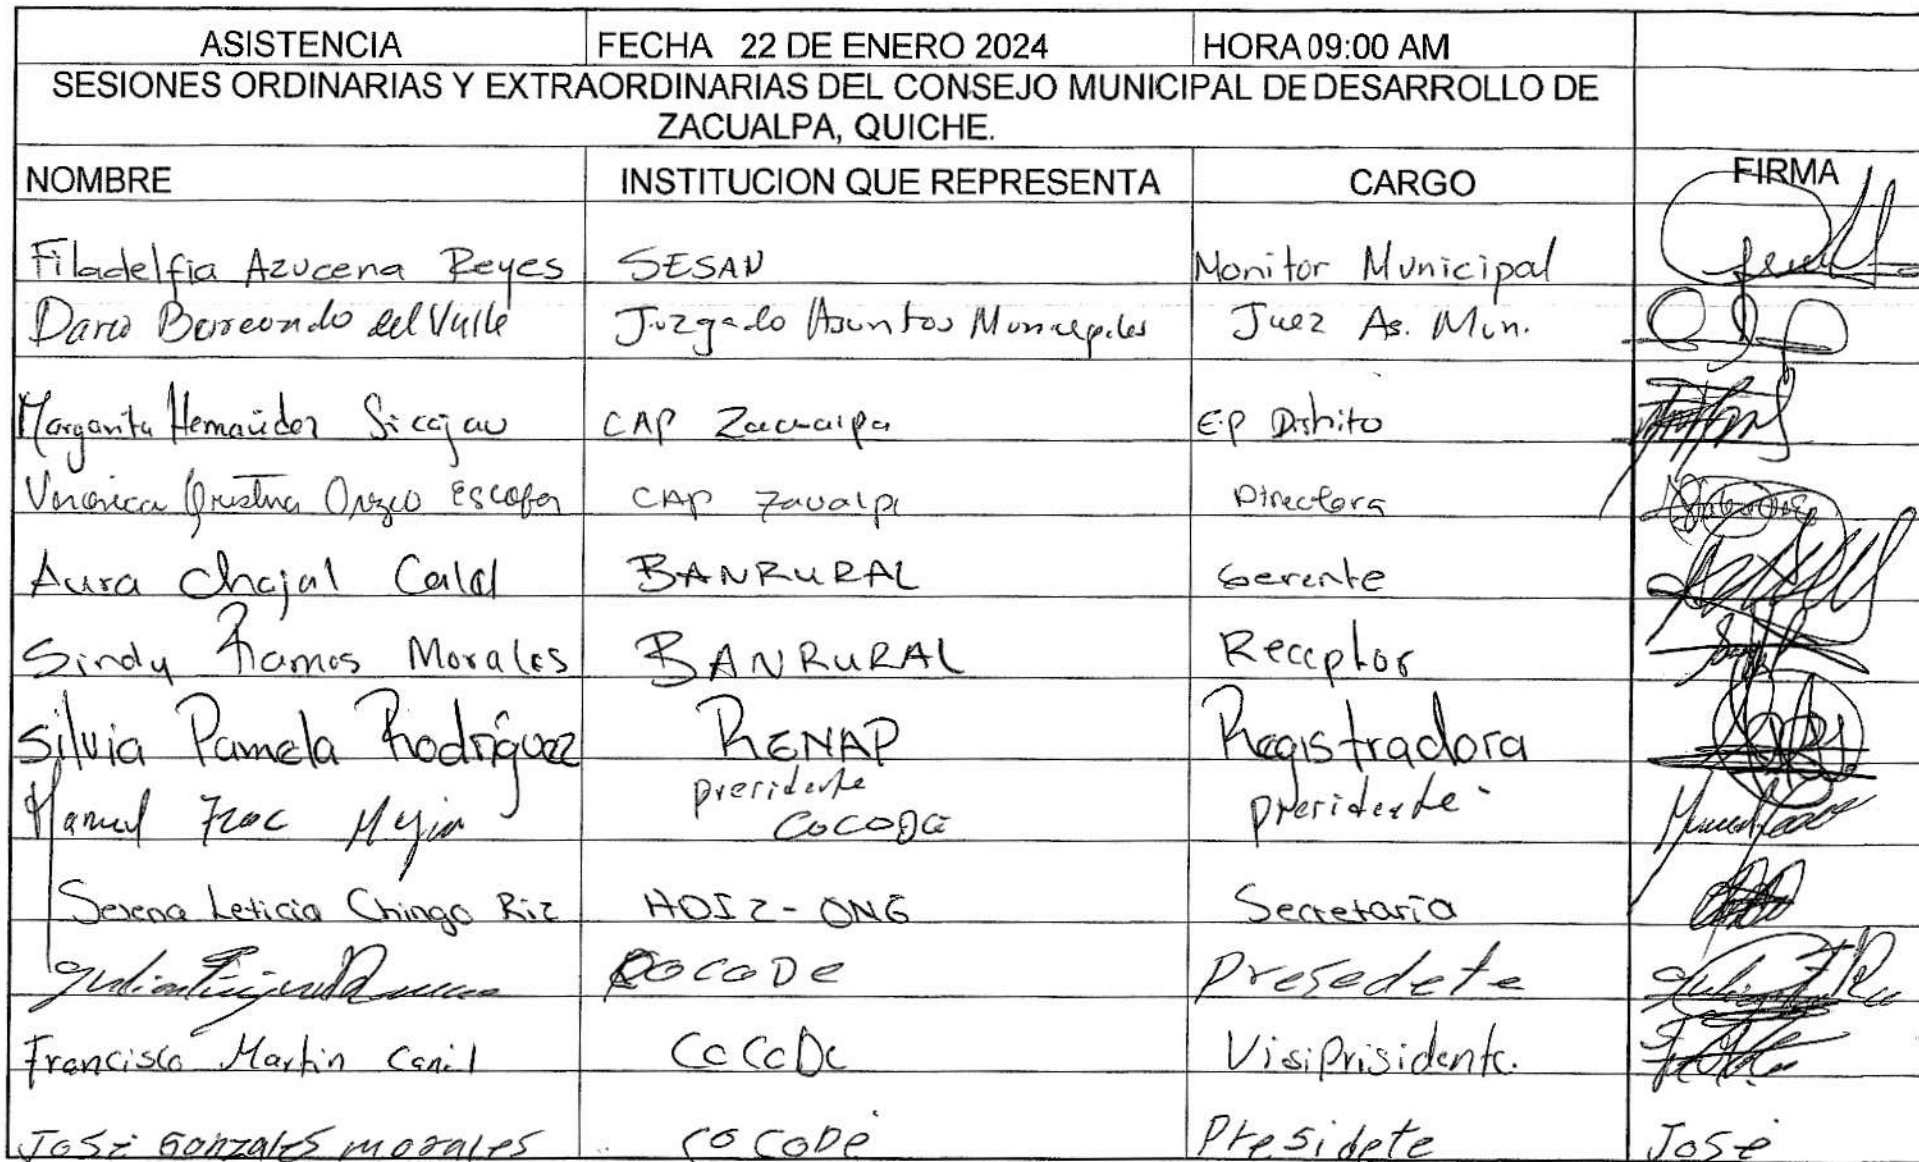 ASISTENCIA FECHA 22 DE ENERO 2024 HORA 09:00 AM
SESIONES ORDINARIAS Y EXTRAORDINARIAS DEL CONSEJO MUNICIPAL DE DESARROLLO DE
ZACUALPA, QUICHE.
NOMBRE INSTITUCION QUE REPRESENTA CARGO FIRMA
Filadelfia Azucena Reyes SESAN Monitor Municipal
del Valle Juzgado Asuntos Municipales Juez As. Mun.
Margarita Hernández CAP Zacualpa E.P Distrito
Orozco CAP Directora
Aura Chajal BANRURAL Gerente
Sindy Ramos Morales BANRURAL Receptor
Silvia Pamela Rodríguez RENAP Registradora
Manuel presidente COCODE presidente
Leticia Chingo Riz ONG Secretaria
COCODE Presedete
Francisco Martin Canil COCODE Visiprisidente.
José Gonzales morales COCODE Presidete José